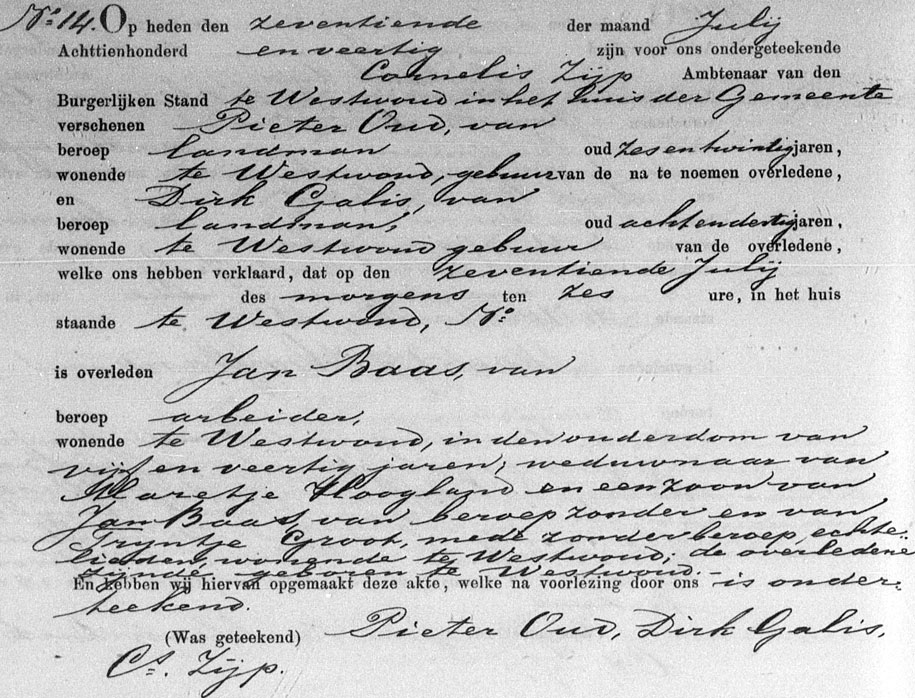 No. 14. Op heden den zeventiende der maand Julij
Achttienhonderd en veertig zijn voor ons ondergeteekende
Cornelis Zijp Ambtenaar van den
Burgerlijken Stand te Westwoud in het huis der Gemeente
verschenen Pieter Oud, van
beroep landman oud zesentwintig jaren,
wonende te Westwoud, gebuur van de na te noemen overledene,
en Dirk Galis, van
beroep landman, oud achtendertig jaren,
wonende te Westwoud gebuur van de overledene,
welke ons hebben verklaard, dat op den zeventiende Julij
des morgens ten zes ure, in het huis
staande te Westwoud, No.
is overleden Jan Baas, van
beroep arbeider,
wonende te Westwoud, in den ouderdom van
vijf en veertig jaren, weduwnaar van
Maretje Hoogland en een zoon van
Jan Baas, van beroep zonder en van
Tryntje Groot, mede zonder beroep, echte-
lieden, wonende te Westwoud; de overledene
zijnde geboren te Westwoud.-
En hebben wij hiervan opgemaakt deze akte, welke na voorlezing door ons is onder-
teekend.
(Was geteekend) Pieter Oud, Dirk Galis,
Cs. Zijp.